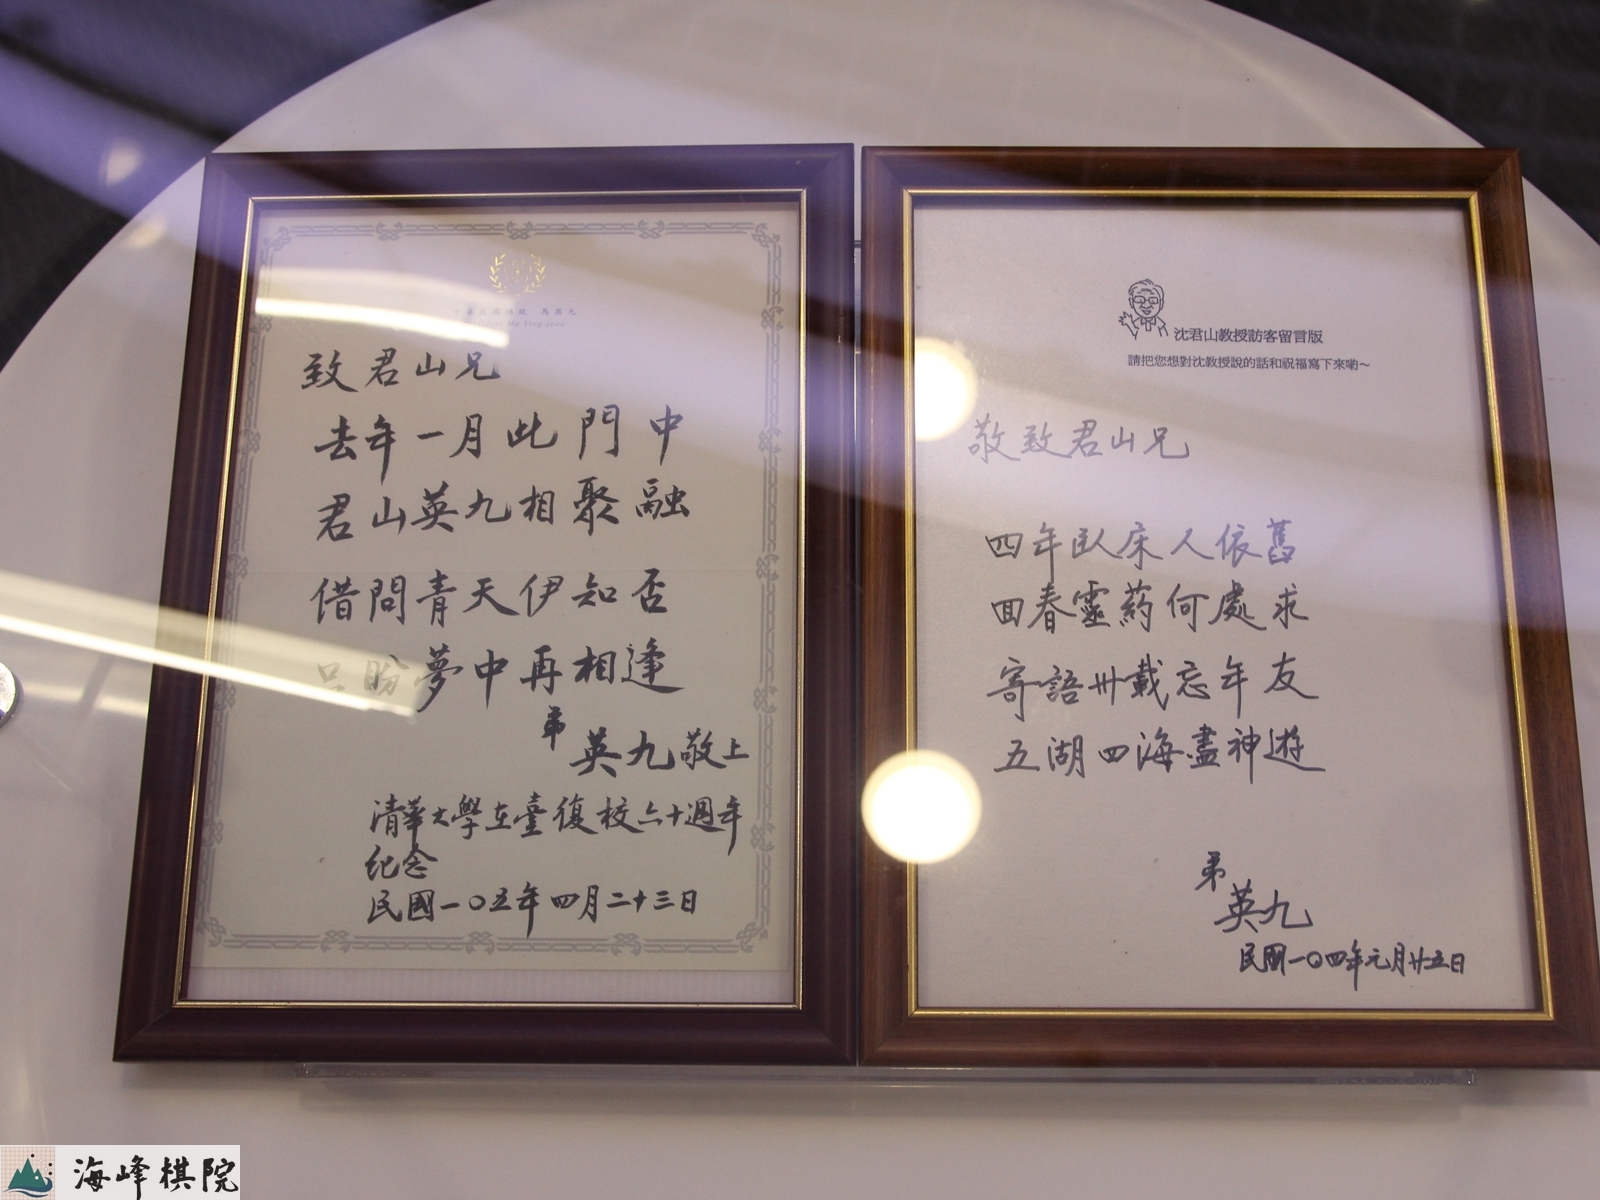 中華民國總統 馬英九
Ma Ying-jeou
致君山兄
去年一月此門中
君山英九相聚融
借問青天伊知否
只盼夢中再相逢
弟
英九敬上
清華大學在臺復校六十週年
紀念
民國一〇五年四月二十三日
沈君山教授訪客留言版
請把您想對沈教授說的話和祝福寫下來喲～
敬致君山兄
四年臥床人依舊
回春靈藥何處求
寄語卅載忘年友
五湖四海盡神遊
弟
英九
民國一〇四年元月廿五日
海峰棋院